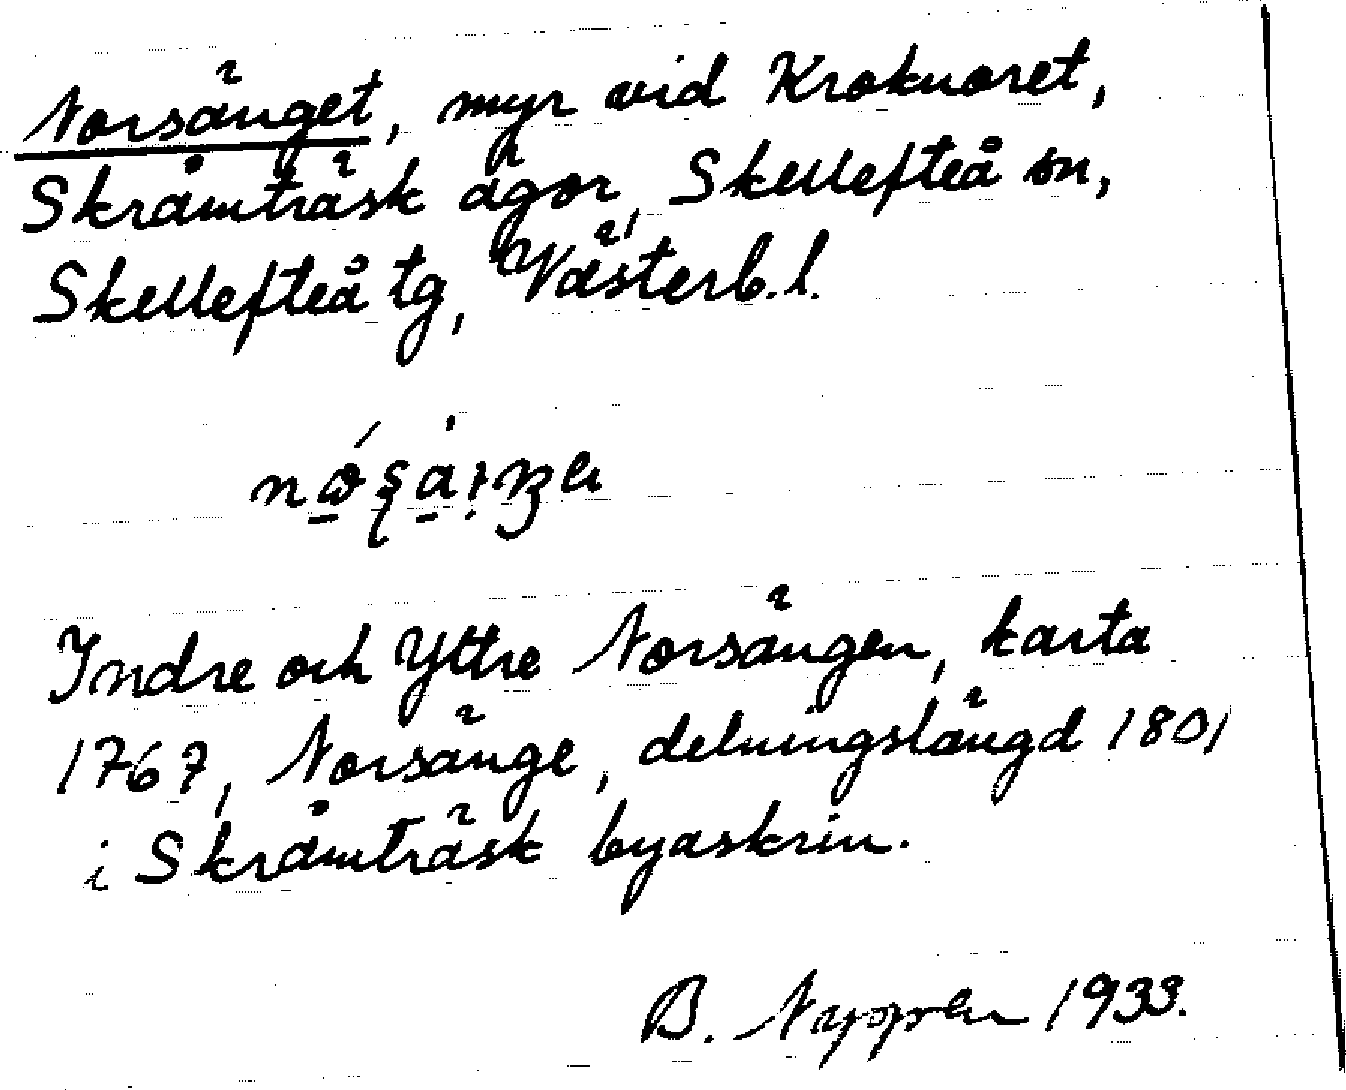 Norsänget, myr vid Krokuoret,
Skråmträsk ägor, Skellefteå sn,
Skellefteå tg, Västerb. l.
Indre och Yttre Norsängen, karta
1767, Norsänge, delningslängd 1801
i Skråmträsk byaskrin.
B. 1933.